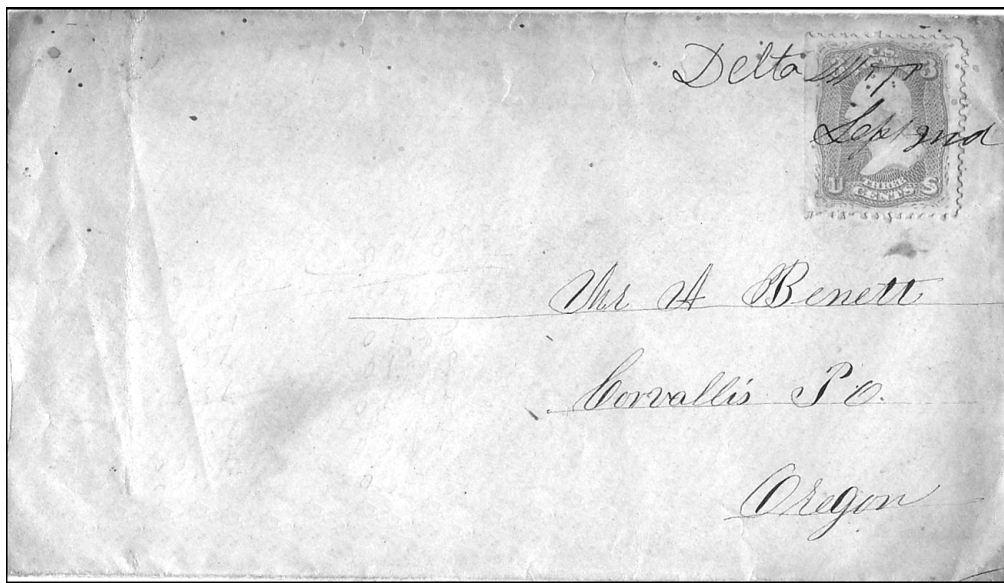 Delta W.T.
Sept 2nd
3 U.S. 3
U CENTS S
Mr A Benett
Corvallis P O.
Oregon